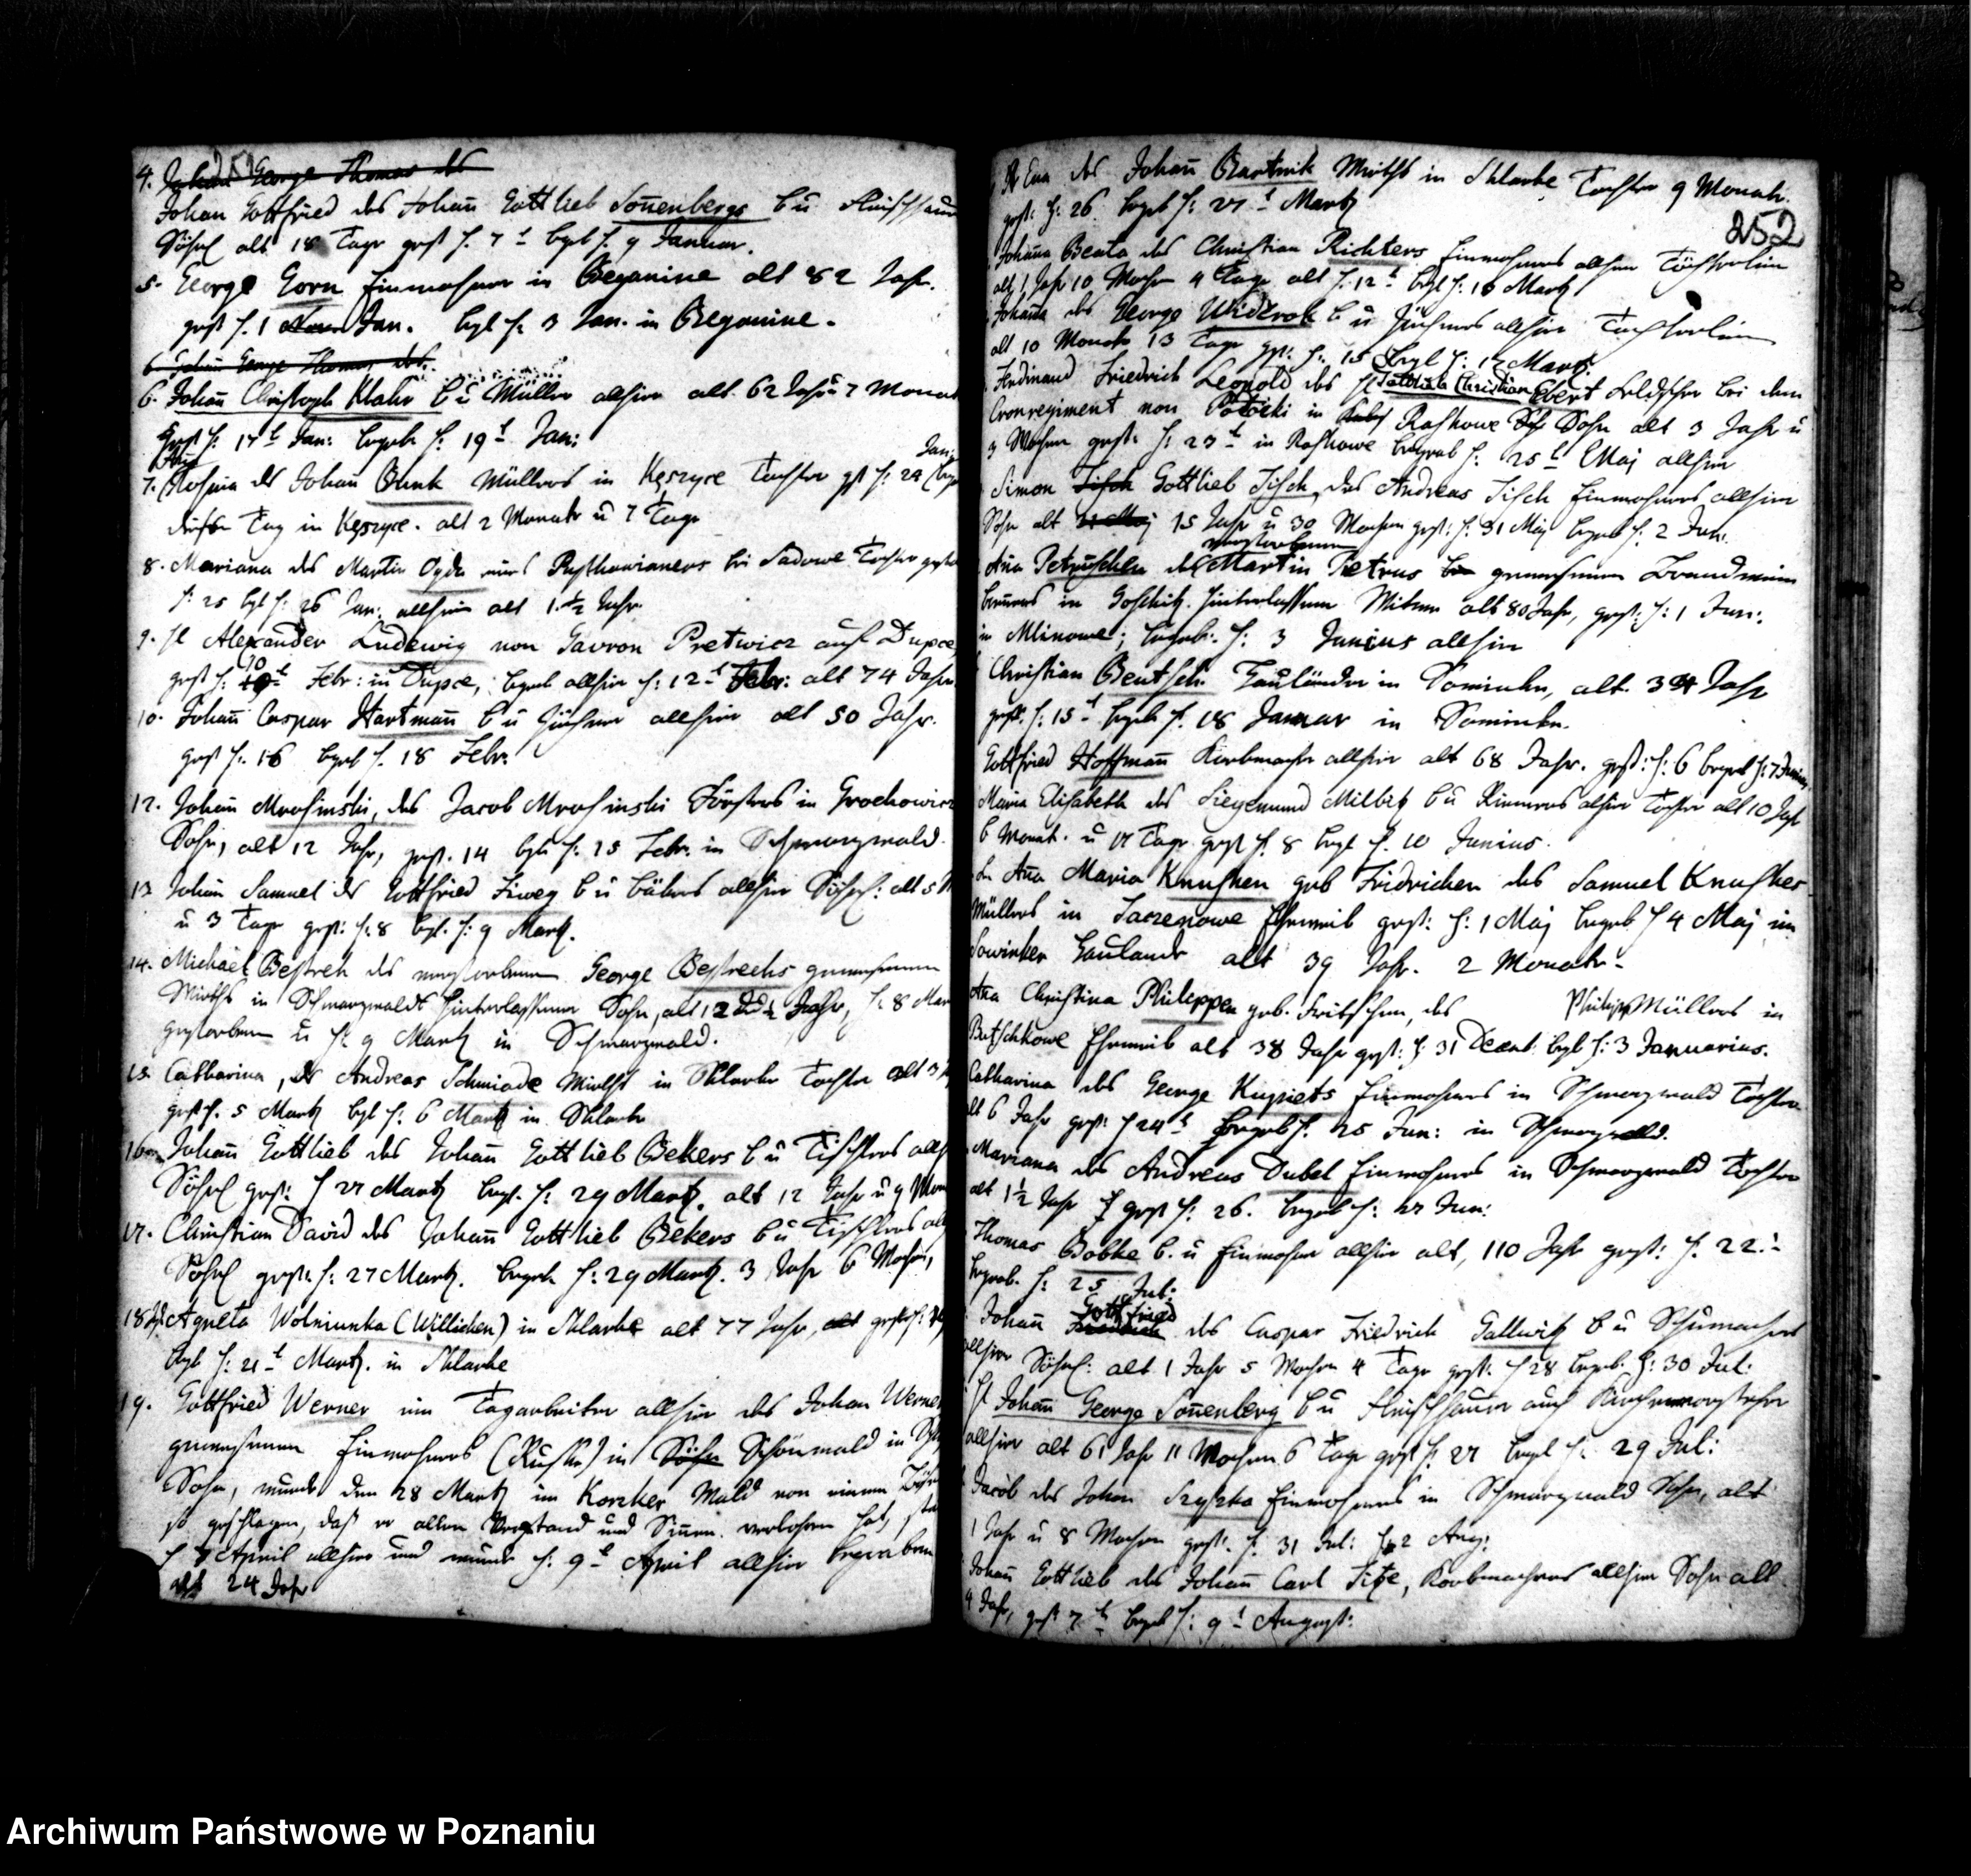 4. Johan George Thomas des
Johan Gottfried des Johañ Gottlieb Soñenbergs b ü Fleischhauer
Söhnl alt 18 Tage gest d. 7t begl d. 9 Januar.
5. George Gorn Einwohner in Beganine alt 82 Jahr.
gest d. 1 Jan. begl d. 3 Jan. in Beganine.
6 Johañ George Thomas des
6. Johañ Christoph Klahr b ü Müller allhier alt 62 Jahr ü 7 Monat
Gest d: 17t Jan: begrb d. 19t Jan:
Jan:
7. Rosina des Johañ Bunk Müllers in Kęszyce Tochter gst d: 24
dissen Tag in Kęszyce. alt 2 Monate ü 7 Tage
8. Mariana des Martin Ogda eines bei Sadowe Tochter
d: 25 begl d: 26 Jan: allhier alt 1 ½ Jahr.
9. H Alexander Ludewig von Gavron Pretwicz auf Dupce,
gest d: 10t Febr: in Dupce, begrb allhier d: 12t Febr: alt 74 Jahr.
10. Johañ Caspar Hartmañ b ü Züchner allhier alt 50 Jahr.
gest d. 16 begrb d. 18 Febr.
12. Johañ Mrosinski, des Jacob Mrosinski Försters in Grochowicz
Sohn, alt 12 Jahr, gest. 14 begr d: 15 Febr. in Schwarzwald.
13 Johañ Samuel des Gottfried Ziweg b ü bäkers allhier Söhnl: alt 5
ü 3 Tage gest: d. 8 begl. d: 9 Martz.
14. Michael Bestreh des verstorbenen George Bestrehs gewesenen
Wirths in Schwarzwaldt hinterlassener Sohn, alt 12 Jahr, d: 8 Mar
gestorben ü d: 9 Martz in Schwarzwald.
15. Catharina, des Andreas Schmiade Wirths in Sklarke Tochter alt 3
gest d. 5 Martz begl d: 6 Martz in Sklarke
16. Johañ Gottlieb des Johañ Gottlieb Bekers b ü Tischlers allh
Söhnl gest: d 27 Martz begr. d: 29 Martz. alt 12 Jahr ü 9 Mon
17. Christian David des Johañ Gottlieb Bekers b ü Tischlers all
Söhnl gest: d: 27 Martz. begrb d: 29 Martz. 3 Jahr 6 Wochen,
18 Agneta Wolniunka (Willichen) in Sklarke alt 77 Jahr, gest d:
begl d: 21t Martz. in Sklarke
19. Gottfried Werner ein Tagarbeiter allhier des Johan Werner
gewesenen Einwohners in Schönwald in
Sohn, wurde den 28 Martz im Korzker Wald von einem
so geschlagen, daß er allen Verstand und Siñen verlohren hat,
d 7 April allhier und wurde d: 9t April allhier begraben
alt 24 Jahr
Eva des Johañ Bartnik Wirths in Sklarke Tochter 9 Monate.
gest: d: 26 begrb d: 27t Martz
252
Johaña Beata des Christian Richters Einwohners allhier Töchterlein
alt 1 Jahr 10 Wochen 4 Tage alt d: 12t begl d: 16 Martz
Johaña des George Widerok b ü Züchners allhier Töchterlein
alt 10 Monate 13 Tage gest: d: 15 begl d: 17 Martz.
Ferdinand Friedrich Leopold des H Christian Ebert Feldscher bei dem
Cronregiment von Potocki in Raschkowe Sohn alt 3 Jahr ü
3 Wochen gest: d: 23t in Raschkowe begrab d. 25t Maj allhier
Simon Gottlieb Fisch, des Andreas Fisch Einwohners allhier
Sohn alt 15 Jahr ü 30 Wochen gest: d. 31 Maj begrb d: 2 Jun.
verstorbenen
Aña Petruschken des Martin Petrus gewesenen Brandwein
breñers in Goschitz hinterlassene Witwe alt 80 Jahr, gest: d: 1 Jun:
in Mlinowe; begrb: d: 3 Junius allhier
Christian Bentsch Hauländer in Sominke, alt. 34 Jahr
gest: d: 15t begrb d. 18 Januar in Sominke.
Gottfried Hoffmañ Korbmacher allhier alt 68 Jahr. gest: d: 6 begrb d: 7 Junius
Maria Elisabeth des Siegemund Milbitz b ü Riemers alhier Tochter alt 10 Jahr
6 Monat. ü 17 Tage gest d. 8 begl d. 10 Junius.
Aña Maria Knuschen geb Fridrichen des Samuel Knusches
Müllers in Jaczenowe Eheweib gest: d: 1 Maj begrb d 4 Maj in
Sowinker Hauland alt 39 Jahr. 2 Monate.
Aña Christina Philippen geb. Fritschen, des Philipp Müllers in
Betschkowe Eheweib alt 38 Jahr gest: d: 31 Decemb: begl d: 3 Januarius.
Catharina des George Kupiets Einwohners in Schwarzwald Tochter
alt 6 Jahr gest: d 24t begrb d. 25 Jun: in Schwarzwald.
Mariana des Andreas Dubel Einwohners in Schwarzwald Tochter
alt 1½ Jahr gest d: 26. begrb d: 27 Jun:
Thomas Bobke b. ü Einwohner allhier alt, 110 Jahr gest: d. 22t
begrab. d: 25 Jul:
Gottfried
Johañ Friedrich des Caspar Friedrich Gallwitz b ü Schumachers
allhier Söhnl: alt 1 Jahr 5 Wochen 4 Tage gest: d 28 begrb. d: 30 Jul:
H Johañ George Soñenberg b ü Fleischhauer auch Kirchenvorsteher
allhier alt 61 Jahr 11 Wochen 6 Tage gest d. 27 begl d: 29 Jul:
Jacob des Johan Szyszka Einwohners in Schwarzwald Sohn, alt
1 Jahr ü 8 Wochen gest: d. 31 Jul: d 2 Aug:
Johañ Gottlieb des Johañ Carl Titze, Korbmachers allhier Sohn alt
4 Jahr, gest 7t begrb d: 9t August:
Archiwum Państwowe w Poznaniu